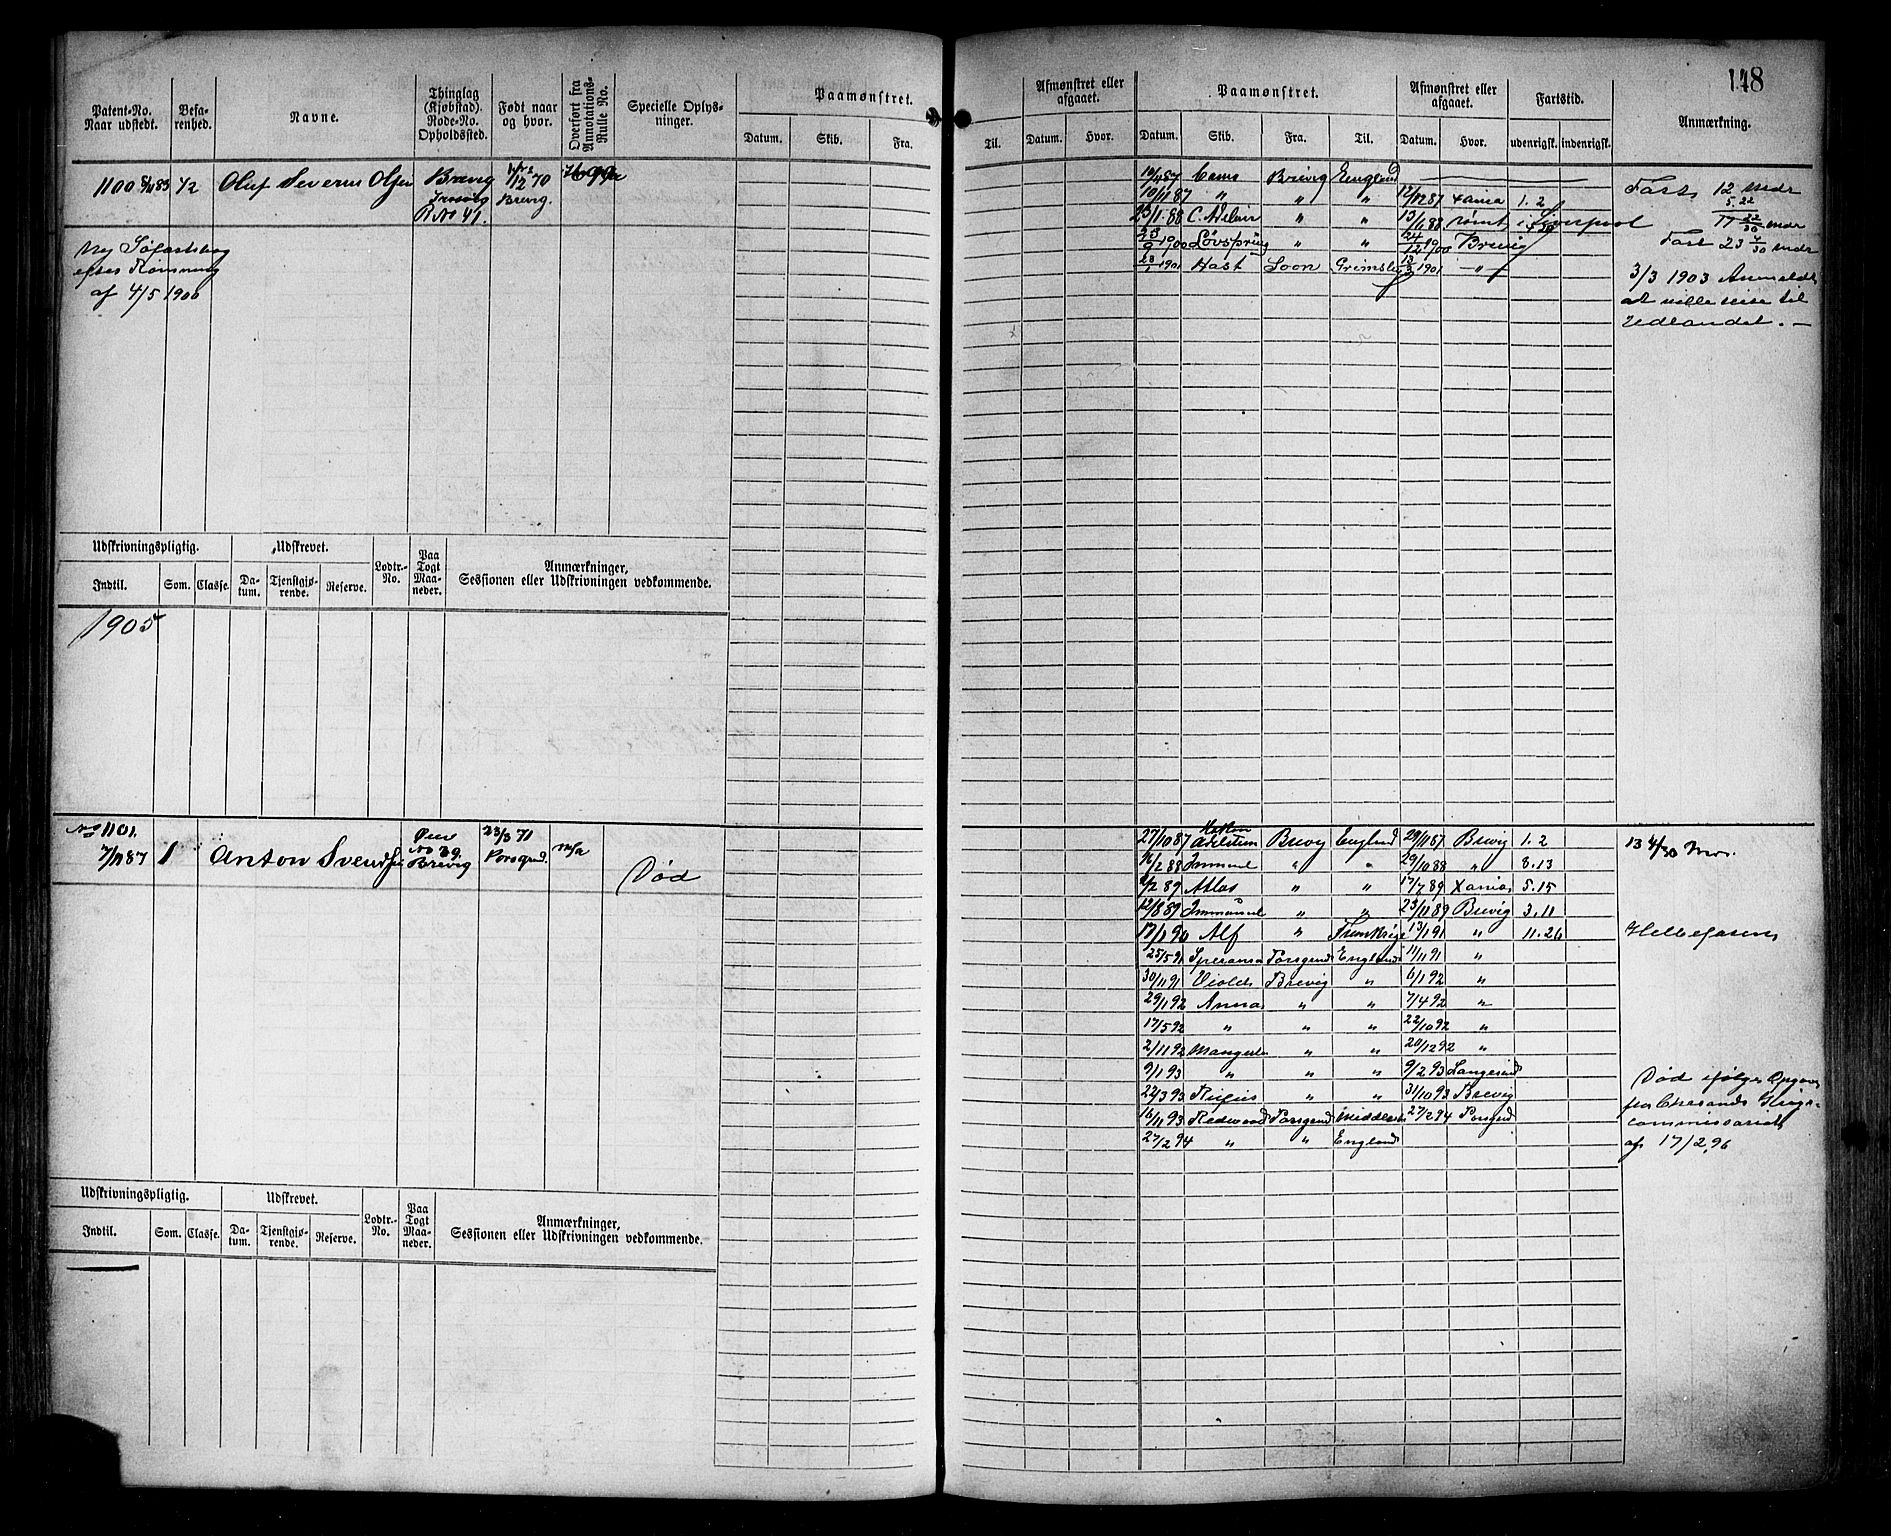 148
Patent-No. Naar udstedt.
Befarenhed.
Navne.
Thinglag (Kjøbstad). Rode-No. Opholdssted.
Født naar og hvor.
Overført fra Annotations-Rulle No.
Specielle Oplysninger.
Paamønstret.
Datum. Skib. Fra.
Til.
Afmønstret eller afgaaet.
Datum. Hvor.
Paamønstret.
Datum. Skib. Fra. Til.
Afmønstret eller afgaaet.
Datum. Hvor.
Fartstid.
udenrigsk. indenrigsk.
Anmærkning.
1100 1/2 Oluf Severin Olsen Brevig 12 70
Brevig.
R No 41.
Ny Søfartsbog
efter Rømning
af 4/5 1900
Brevig England
10/11 87 " " " 12/12 87 Xania 1.2
23/1 88 C. Adeler " " 13/6 88 rømt i Liverpool
1900 Løvspring " " 24/12 1900 Brevig
1901 Høst Soon Grimsby 1901 "
Fart 12 mdr
5.22
17 22/30 mdr
Fart 23 1/30 mdr
3/3 1903 Anmeldt
at ville reise til
Udlandet. –
Udskrivningspligtig. Udskrevet. Lodtr.-No. Paa Togt Maaneder. Anmærkninger, Sessionen eller Udskrivningen vedkommende.
Indtil. Som. Classe. Datum. Tjenstgjørende. Reserve.
1905
No 1101.
7/11 87 1 Anton Svendsen No 39. Brevig 23/3 71 Porsgrund
Død
27/10 87 Hakon Adelsteen Brevig England 29/11 87 Brevig 1.2
2 88 Immanuel " " 29/10 88 " 8.13
2 89 Atlas " " 17/7 89 Xania 5.15
12/8 89 Immanuel " " 23/11 89 Brevig 3.11
17/1 90 Alf " Frankrige 13/1 91 " 11.26
25/5 91 Speransa Porsgrund England 11/11 91 "
30/11 91 Violet Brevig " 6/1 92 "
29/1 92 Anna " " 7/4 92 "
17/5 92 " " " 22/10 92 "
2/11 92 " " 20/12 92 "
9/1 93 " " " 9/2 93 Langesund
22/3 93 " " 31/10 93 Brevig
16/11 93 Redwood Porsgrund 27/2 94 Porsgrund
27/2 94 " " England
13 4/30 Mdr.
Helbefaren
Død ifølge Opgave
fra Chrsands Krigs-
commissariat
af 17/2 96
Udskrivningspligtig. Udskrevet. Lodtr.-No. Paa Togt Maaneder. Anmærkninger, Sessionen eller Udskrivningen vedkommende.
Indtil. Som. Classe. Datum. Tjenstgjørende. Reserve.